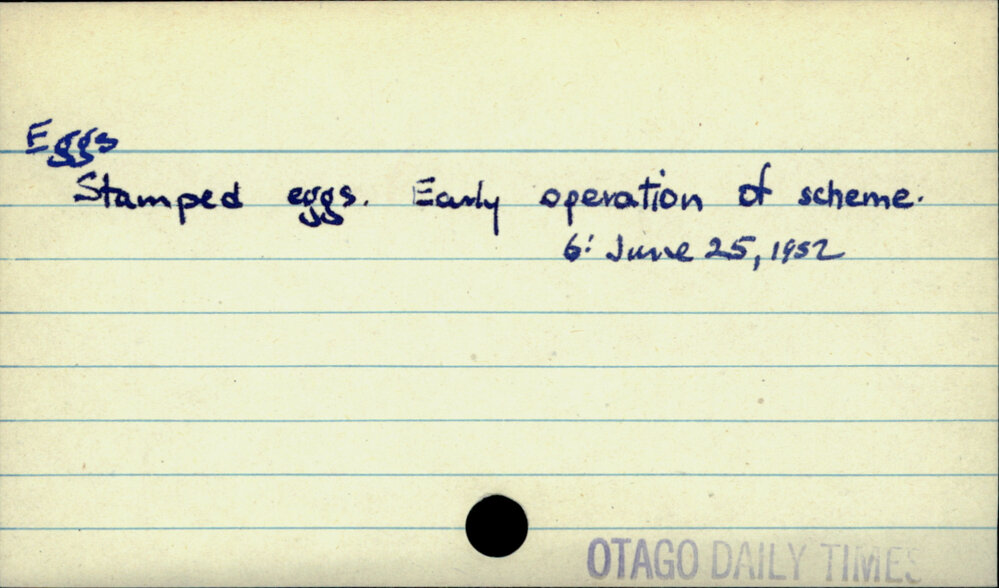 Eggs
Stamped eggs. Early operation of scheme.
6: June 25, 1952
OTAGO DAILY TIMES